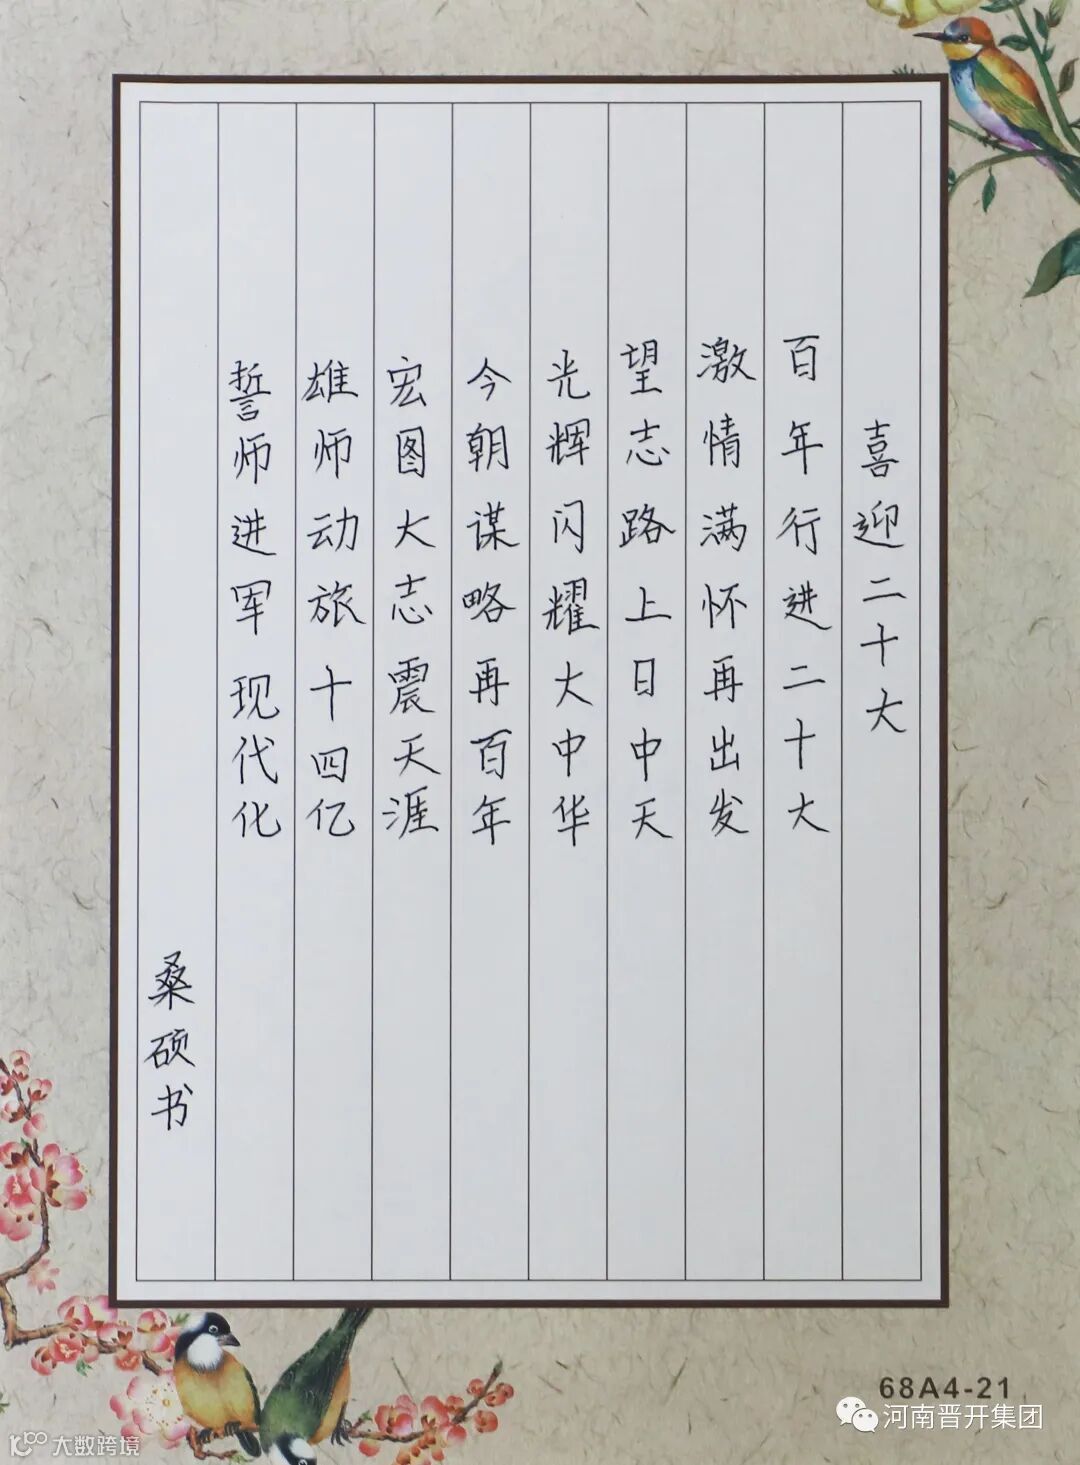 喜迎二十大
百年行进二十大
激情满怀再出发
望志路上日中天
光辉闪耀大中华
今朝谋略再百年
宏图大志震天涯
雄师动旅十四亿
誓师进军现代化
桑硕书
68A4-21
河南晋开集团
大数跨境